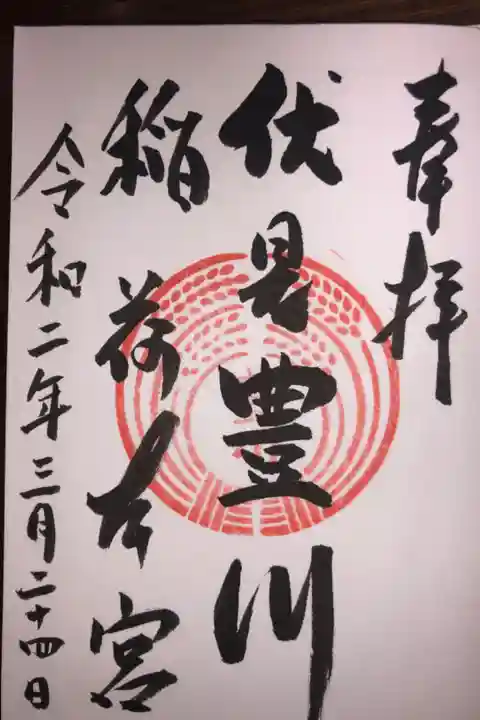 奉拝
伏見豊川
稲荷本宮
令和二年三月二十四日